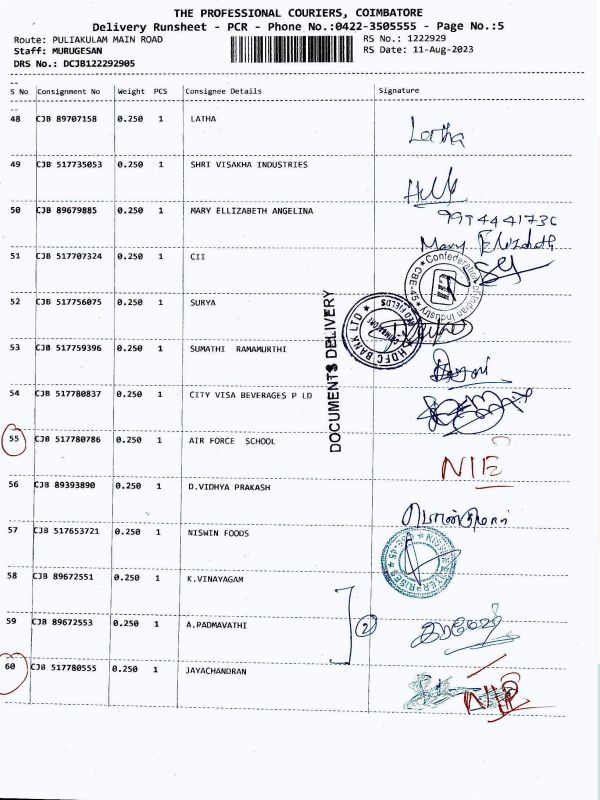 THE PROFESSIONAL COURIERS, COIMBATORE
Delivery Runsheet - PCR - Phone No.:0422-3505555 - Page No.:5
Route: PULIAKULAM MAIN ROAD
RS No.: 1222929
Staff: MURUGESAN
RS Date: 11-Aug-2023
DRS No.: DCJB122292905
S No Consignment No Weight PCS Consignee Details Signature
48 CJB 89707158 0.250 1 LATHA
Latha
49 CJB 517735053 0.250 1 SHRI VISAKHA INDUSTRIES
50 CJB 89679885 0.250 1 MARY ELLIZABETH ANGELINA
9994441736
Mary Elizabeth
51 CJB 517707324 0.250 1 CII
Confederation of Indian Industry
CBE-45
52 CJB 517756075 0.250 1 SURYA
HDFC BANK LTD
DOCUMENTS DELIVERY
53 CJB 517759396 0.250 1 SUMATHI RAMAMURTHI
54 CJB 517780837 0.250 1 CITY VISA BEVERAGES P LD
55 CJB 517780786 0.250 1 AIR FORCE SCHOOL
NIE
56 CJB 89393890 0.250 1 D.VIDHYA PRAKASH
57 CJB 517653721 0.250 1 NISWIN FOODS
58 CJB 89672551 0.250 1 K.VINAYAGAM
59 CJB 89672553 0.250 1 A.PADMAVATHI
2
60 CJB 517780555 0.250 1 JAYACHANDRAN